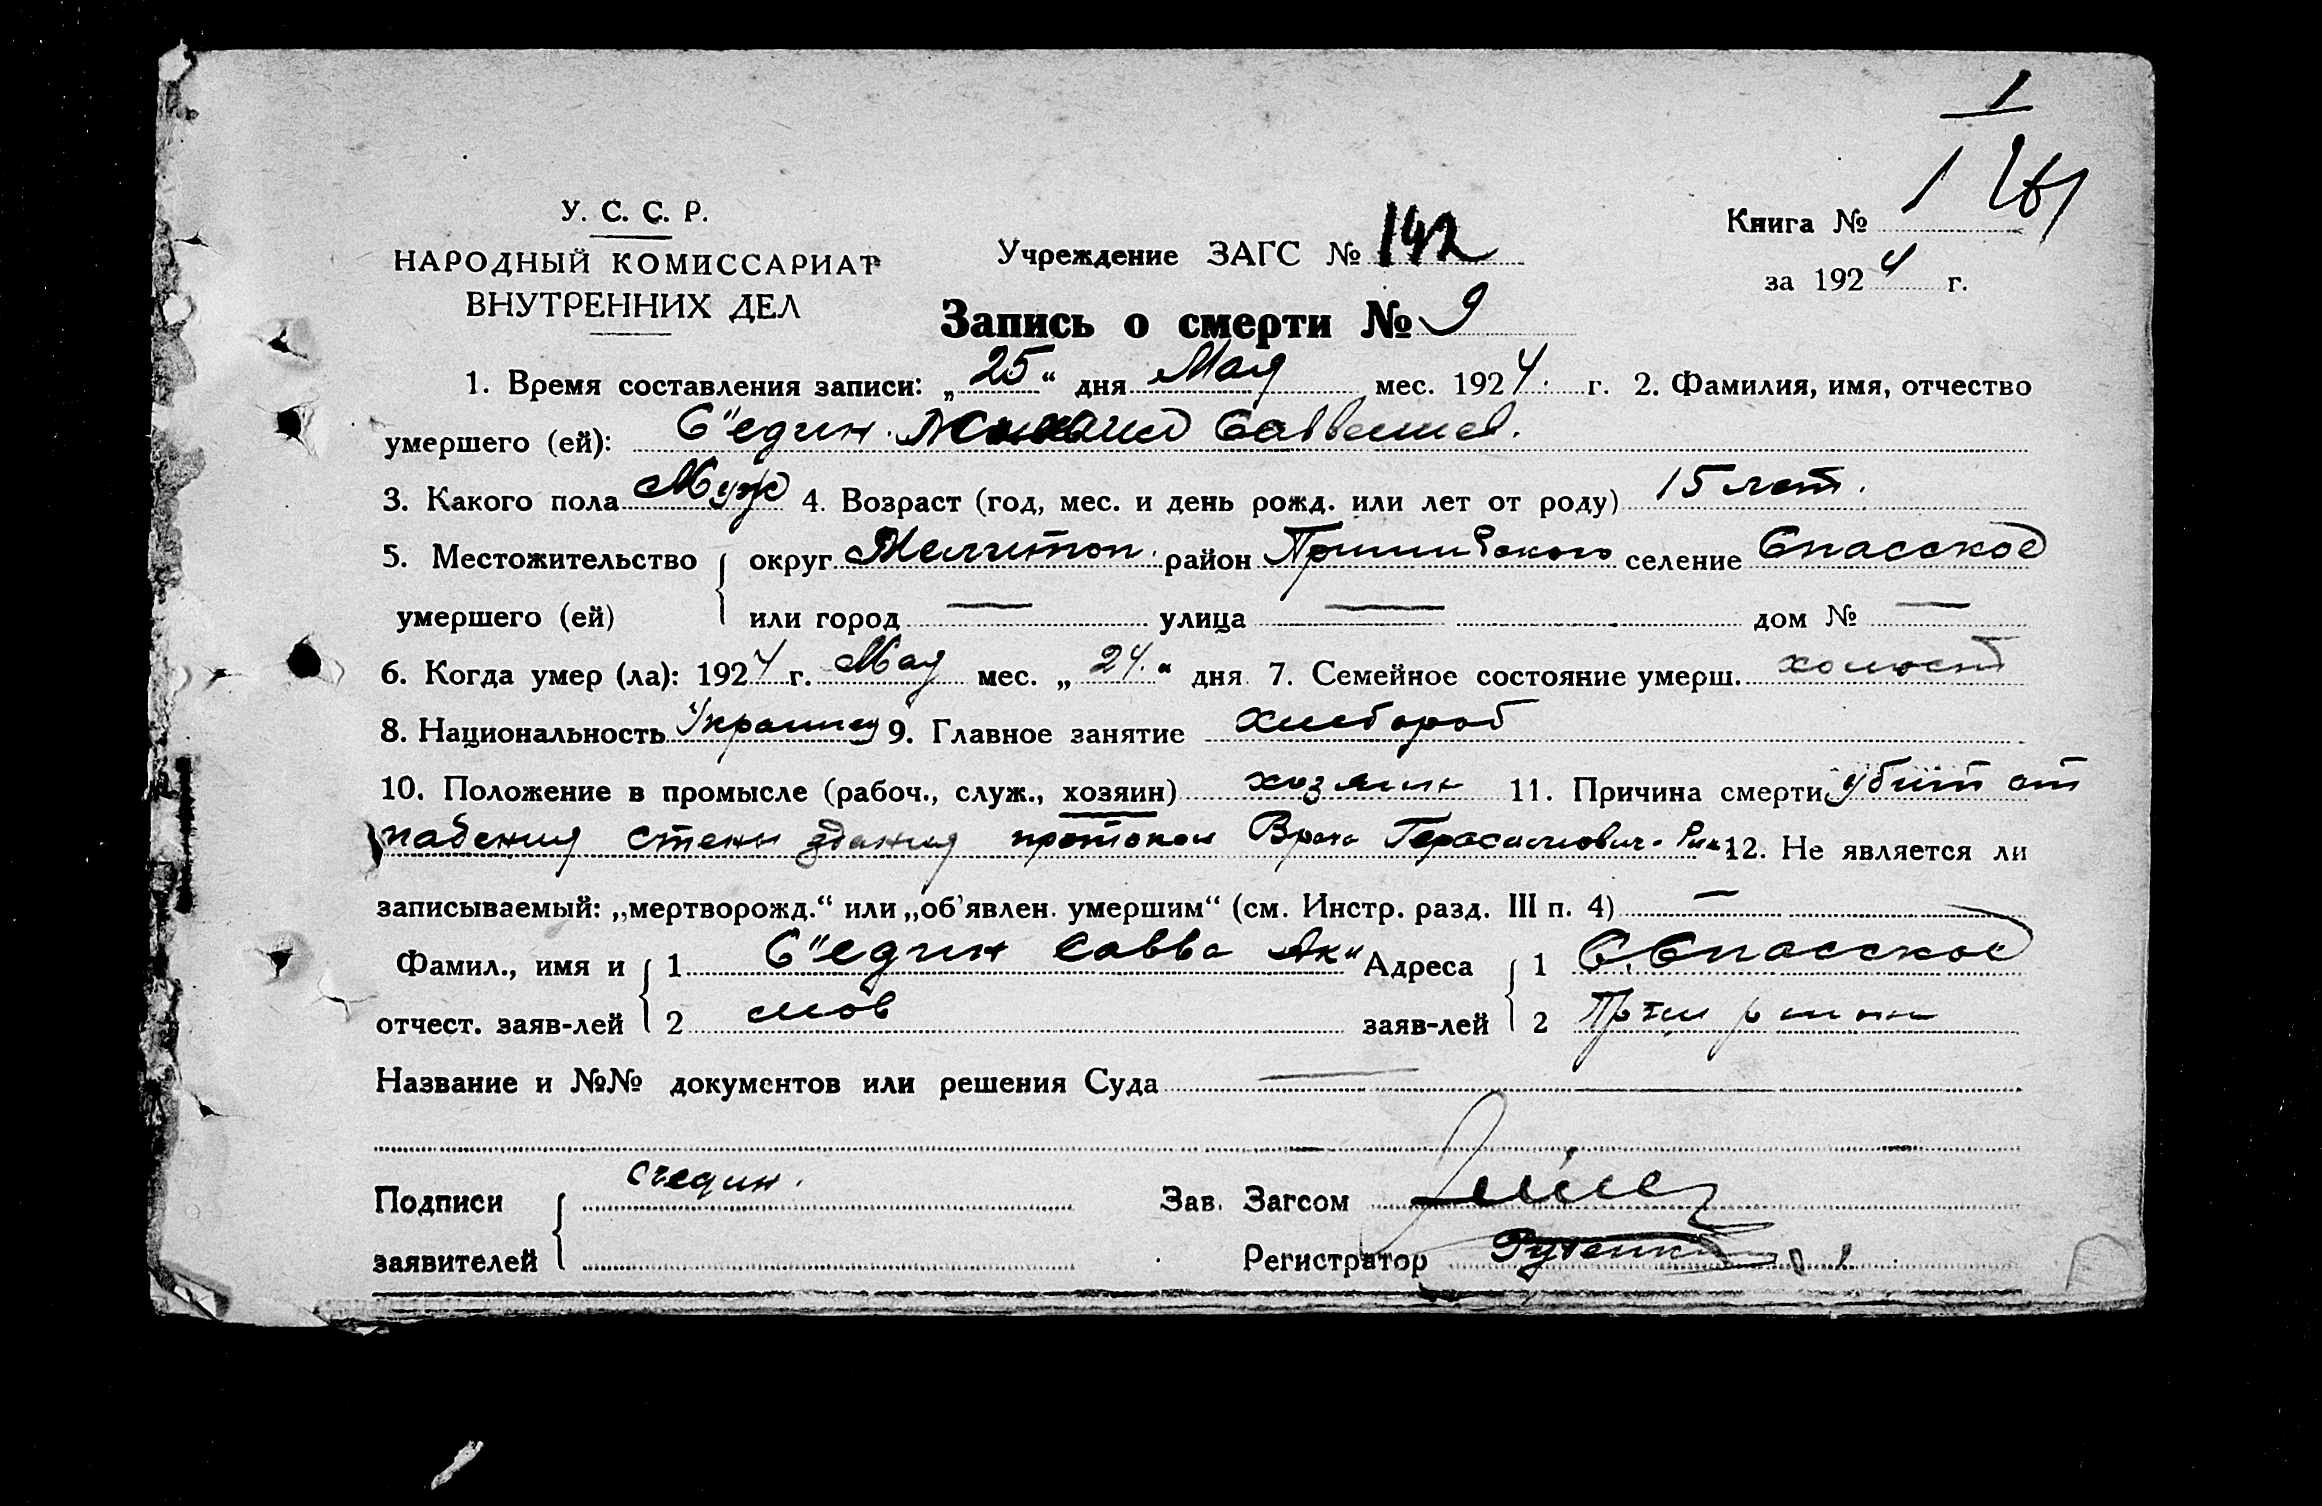 1
У. С. С. Р.
НАРОДНЫЙ КОМИССАРИАТ
ВНУТРЕННИХ ДЕЛ
Учреждение ЗАГС № 142
Книга № 1
за 1924 г.
Запись о смерти № 9
1. Время составления записи: „25“ дня Мая мес. 1924 г. 2. Фамилия, имя, отчество
умершего (ей): С"един Михаил Саввешев.
3. Какого пола Муж 4. Возраст (год, мес. и день рожд. или лет от роду) 15 лет.
5. Местожительство округ Мелитоп. район селение Спасское
умершего (ей) или город — улица — дом № —
6. Когда умер (ла): 1924 г. Мая мес. „24.“ дня 7. Семейное состояние умерш. холост
8. Национальность Украинец 9. Главное занятие хлебороб
10. Положение в промысле (рабоч., служ., хозяин) хозяин 11. Причина смерти убит от
падения стены здания протокол Врача Герасимович. 12. Не является ли
записываемый: „мертворожд.“ или „об'явлен. умершим“ (см. Инстр. разд. III п. 4) —
Фамил., имя и 1 С"един Савва Як" Адреса 1 С. Спасское
отчест. заяв-лей 2 мов заяв-лей 2 района
Название и №№ документов или решения Суда —
Подписи съедин. Зав. Загсом
заявителей Регистратор